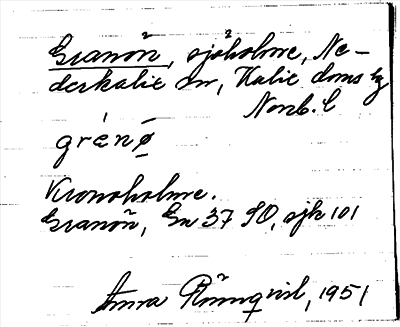 Granön, sjöholme, Ne-
derkalix sn, Kalix doms lg
Norrb. l
grénø̨
Kronoholme.
Granön, Gn 37 SO, sjk 101
Anna Rönnqvist, 1951